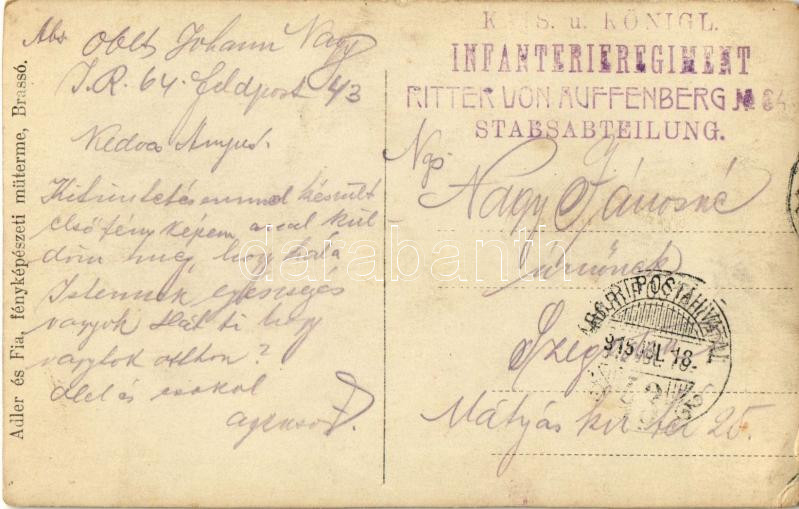 Adler és Fia, fényképészeti műterme, Brassó.
Abs Oblt Johann Nagy
I.R. 64. Feldpost 43
Kedves
Kitüntetésemmel készült
első fényképem azzal kül
döm meg, hogy hála
Istennek egészségés
vagyok Hát ti hogy
vagytok otthon?
ölel és csókol
K. u. KÖNIGL.
INFANTERIEREGIMENT
RITTER VON AUFFENBERG № 64
STABSABTEILUNG.
Ngs
Nagy Jánosné
úrnőnek
Szeged
Mátyás kir tér 25.
TÁBORI POSTAHIVATAL
915 JUL. 18
darabanth